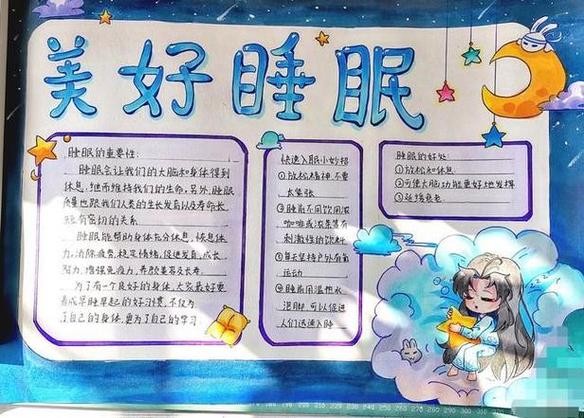 美好睡眠
睡眠的重要性:
睡眠会让我们的大脑和身体得到
休息,继而维持我们的生命。另外,睡眠
质量也跟我们人类的生长发育以及寿命长
短有密切的关系
睡眠能帮助身体充分休息,恢复体
力,消除疲劳,稳定情绪,促进发育,成长
智力,增强免疫力,养颜美容及长寿
为了有一个良好的身体,大家最好要
养成早睡早起的好习惯,不仅为
了自己的身体,更为了自己的学习
快速入眠小妙招
①放松精神,不要
太紧张
②睡前不饮用浓
咖啡或浓茶等有
刺激性的饮料
③每天坚持户外有氧
运动
④睡前用温热水
泡脚,可以促进
人们迅速入睡
睡眠的好处:
①放松和休息
②方便大脑功能更好地发挥
③延缓衰老